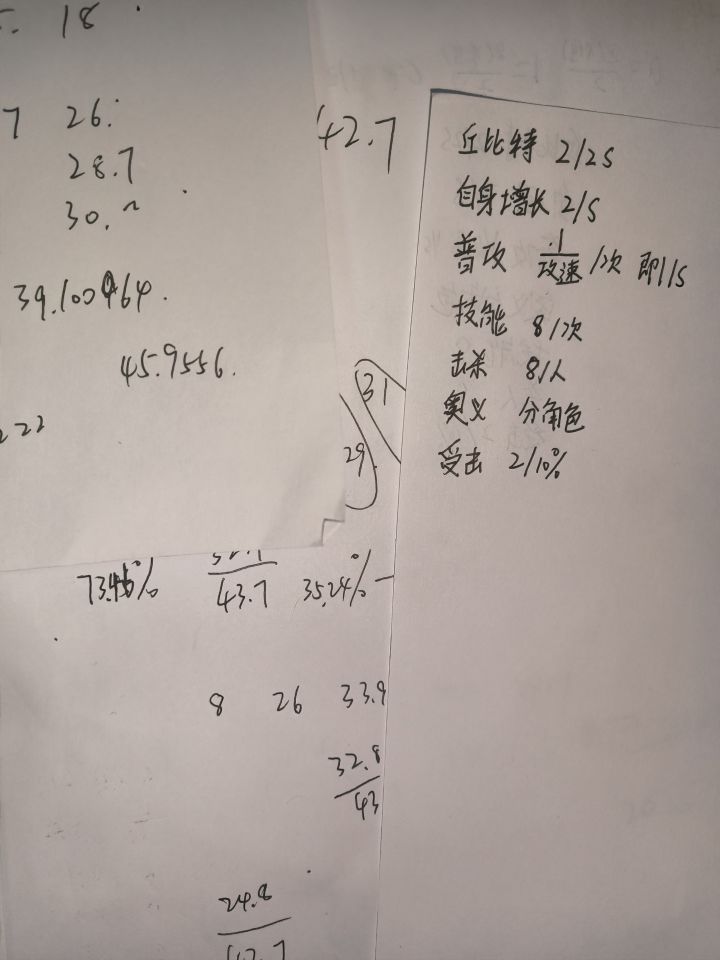 18
7 26.
28.7
30.
39.100964.
45.9556.
222
42.7
31
29.
73.46%
43.7
35.24% —
8 26 33.9
32.8
43
24.8
丘比特 2/2S
自身增长 2/S
普攻 1/攻速 /次 即1/S
技能 8/次
击杀 8/人
奥义 分角色
受击 2/10%